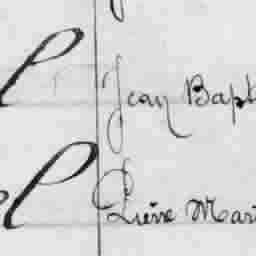 l Jean Bapt
l Pierre Mari